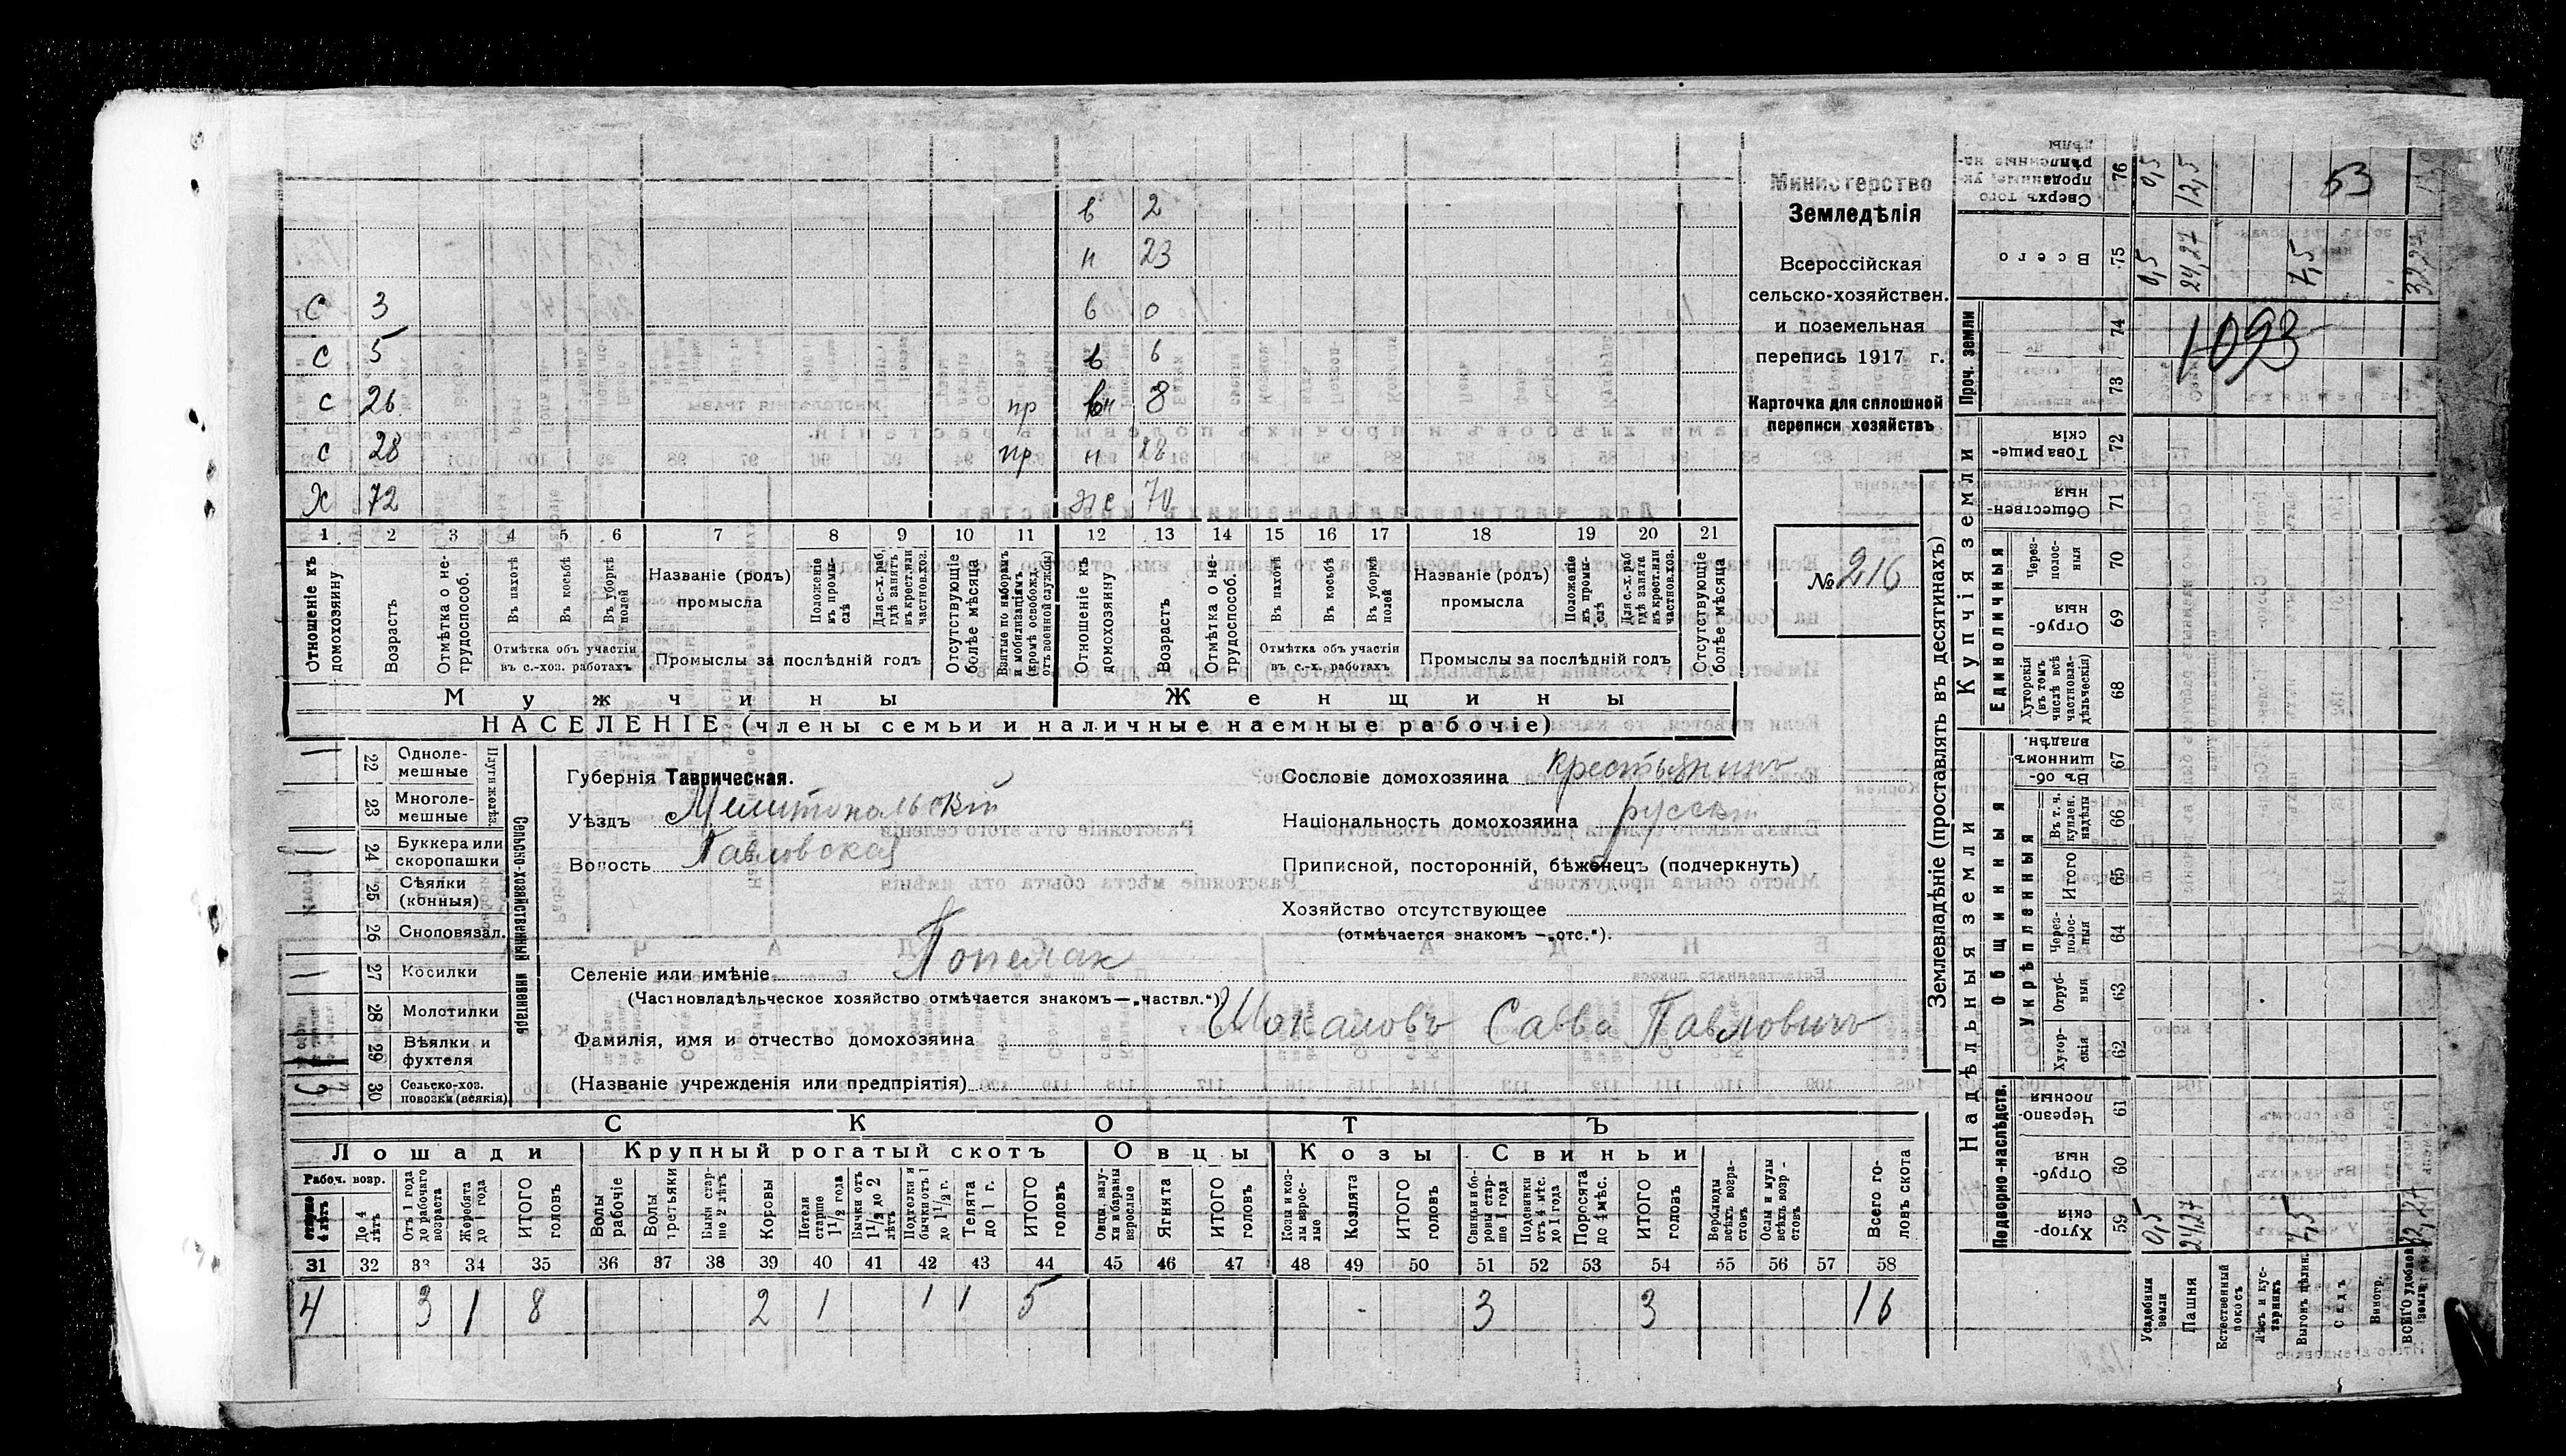 в 2
н 23
с 3 в 0
с 5 в 6
с 26 пр 8
с 28 пр н 28
х 72 ж 70
1 2 3 4 5 6 7 8 9 10 11 12 13 14 15 16 17 18 19 20 21
Отношеніе къ домохозяину
Возрастъ
Отмѣтка о нетрудоспособ.
Въ пахотѣ
Въ косьбѣ
Въ уборкѣ полей
Отмѣтка объ участіи въ с.-хоз. работахъ
Названіе (родъ) промысла
Положеніе въ промыслѣ
Для с.-х. раб. гдѣ занятъ въ крест. или частнов. хоз.
Промыслы за послѣдній годъ
Отсутствующіе болѣе мѣсяца
Взятые по наборамъ и мобилизаціямъ (кромѣ освобожд. отъ военной службы)
Отношеніе къ домохозяину
Возрастъ
Отмѣтка о нетрудоспособ.
Въ пахотѣ
Въ косьбѣ
Въ уборкѣ полей
Отмѣтка объ участіи въ с.-х. работахъ
Названіе (родъ) промысла
Положеніе въ промыслѣ
Для с.-х. раб. гдѣ занята въ крест. или частнов. хоз.
Промыслы за послѣдній годъ
Отсутствующіе болѣе мѣсяца
Мужчины Женщины
НАСЕЛЕНІЕ (члены семьи и наличные наемные рабочіе)
Министерство
Земледѣлія
Всероссійская
сельско-хозяйствен.
и поземельная
перепись 1917 г.
Карточка для сплошной
переписи хозяйствъ
№ 216
Сельско-хозяйственный инвентарь
Плуги желѣз.
22 Одноле-
мешные
23 Многоле-
мешные
24 Буккера или
скоропашки
25 Сѣялки
(конныя)
26 Сноповязал.
27 Косилки
28 Молотилки
29 Вѣялки и
фухтеля
30 Сельско-хоз.
повозки (всякія)
Губернія Таврическая.
Уѣздъ Мелитопольскій
Волость Павловская
Сословіе домохозяина крестьянинъ
Національность домохозяина русскій
Приписной, посторонній, бѣженецъ (подчеркнуть)
Хозяйство отсутствующее
(отмѣчается знакомъ — „отс.“).
Селеніе или имѣніе Попелак
(Частновладѣльческое хозяйство отмѣчается знакомъ — „частвл.“)
Фамилія, имя и отчество домохозяина Шокаловъ Савва Павловичъ
(Названіе учрежденія или предпріятія)
СКОТЪ
Лошади Крупный рогатый скотъ Овцы Козы Свиньи
Рабоч. возр.
старше 4 лѣтъ
До 4 лѣтъ
Отъ 1 года до рабочаго возраста
Жеребята до 1 года
ИТОГО головъ
Волы рабочіе
Волы третьяки
Быки старше 2 лѣтъ
Коровы
Нетели старше 1 1/2 года
Бычки отъ 1 1/2 до 2 лѣтъ
Подтелки и бычки отъ 1 до 1 1/2 г.
Телята до 1 г.
ИТОГО головъ
Овцы, валухи и бараны взрослые
Ягнята
ИТОГО головъ
Козы и козлы взрослые
Козлята
ИТОГО головъ
Свиньи и боровы старше 1 года
Подсвинки отъ 4 мѣс. до 1 года
Поросята до 4 мѣс.
ИТОГО головъ
Верблюды всѣхъ возрастовъ
Ослы и мулы всѣхъ возрастовъ
Всего головъ скота
31 32 33 34 35 36 37 38 39 40 41 42 43 44 45 46 47 48 49 50 51 52 53 54 55 56 57 58
4 3 1 8 2 1 1 1 5 3 3 16
Землевладѣніе (проставлять въ десятинахъ)
Надѣльныя земли
Купчія земли
Проч. земли
Подворно-наслѣдств.
Общинныя
Укрѣпленныя
Единоличныя
76 Сверхъ того проданные укрѣпленные надѣлы 0,5 12,5 53
75 Всего 0,5 24,27 7,5 32,27
74
1093
73
72 Товарищескія
71 Общественныя
70 Черезполосныя
69 Отрубныя
68 Хуторскія (въ томъ числѣ всѣ частновладѣльческія)
67 Въ общинномъ владѣн.
66 Въ т. ч. куплен. надѣлы
65 Итого
64 Черезполосныя
63 Отрубныя
62 Хуторскія
61 Черезполосныя
60 Отрубныя
59 Хуторскія 0,5 24,27 7,5 32,27
Усадебныя земли
Пашня
Естественный покосъ
Лѣсъ и кустарникъ
Выгонъ цѣлин.
Садъ
Виногр.
ВСЕГО удобной земли